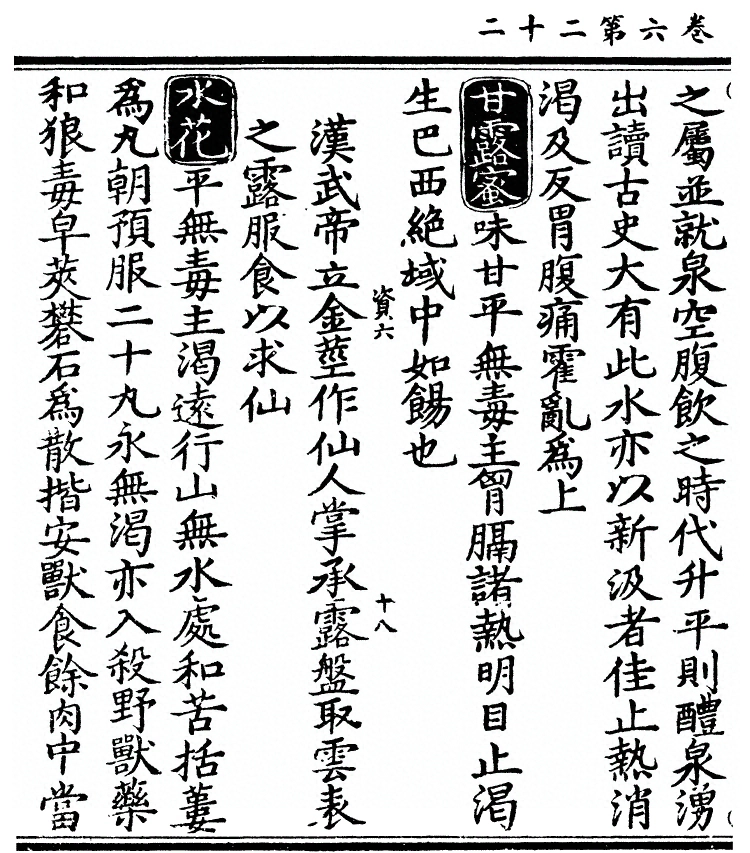 卷六第二十二
之屬並就泉空腹飲之時代升平則醴泉湧
出讀古史大有此水亦以新汲者佳止熱消
渴及反胃腹痛霍亂爲上
甘露蜜味甘平無毒主胷膈諸熱明目止渴
生巴西絶域中如餳也
資六
十八
漢武帝立金莖作仙人掌承露盤取雲表
之露服食以求仙
水花平無毒主渴遠行山無水處和苦括蔞
爲丸朝預服二十丸永無渴亦入殺野獸藥
和狼毒皁莢礬石爲散揩安獸食餘肉中當